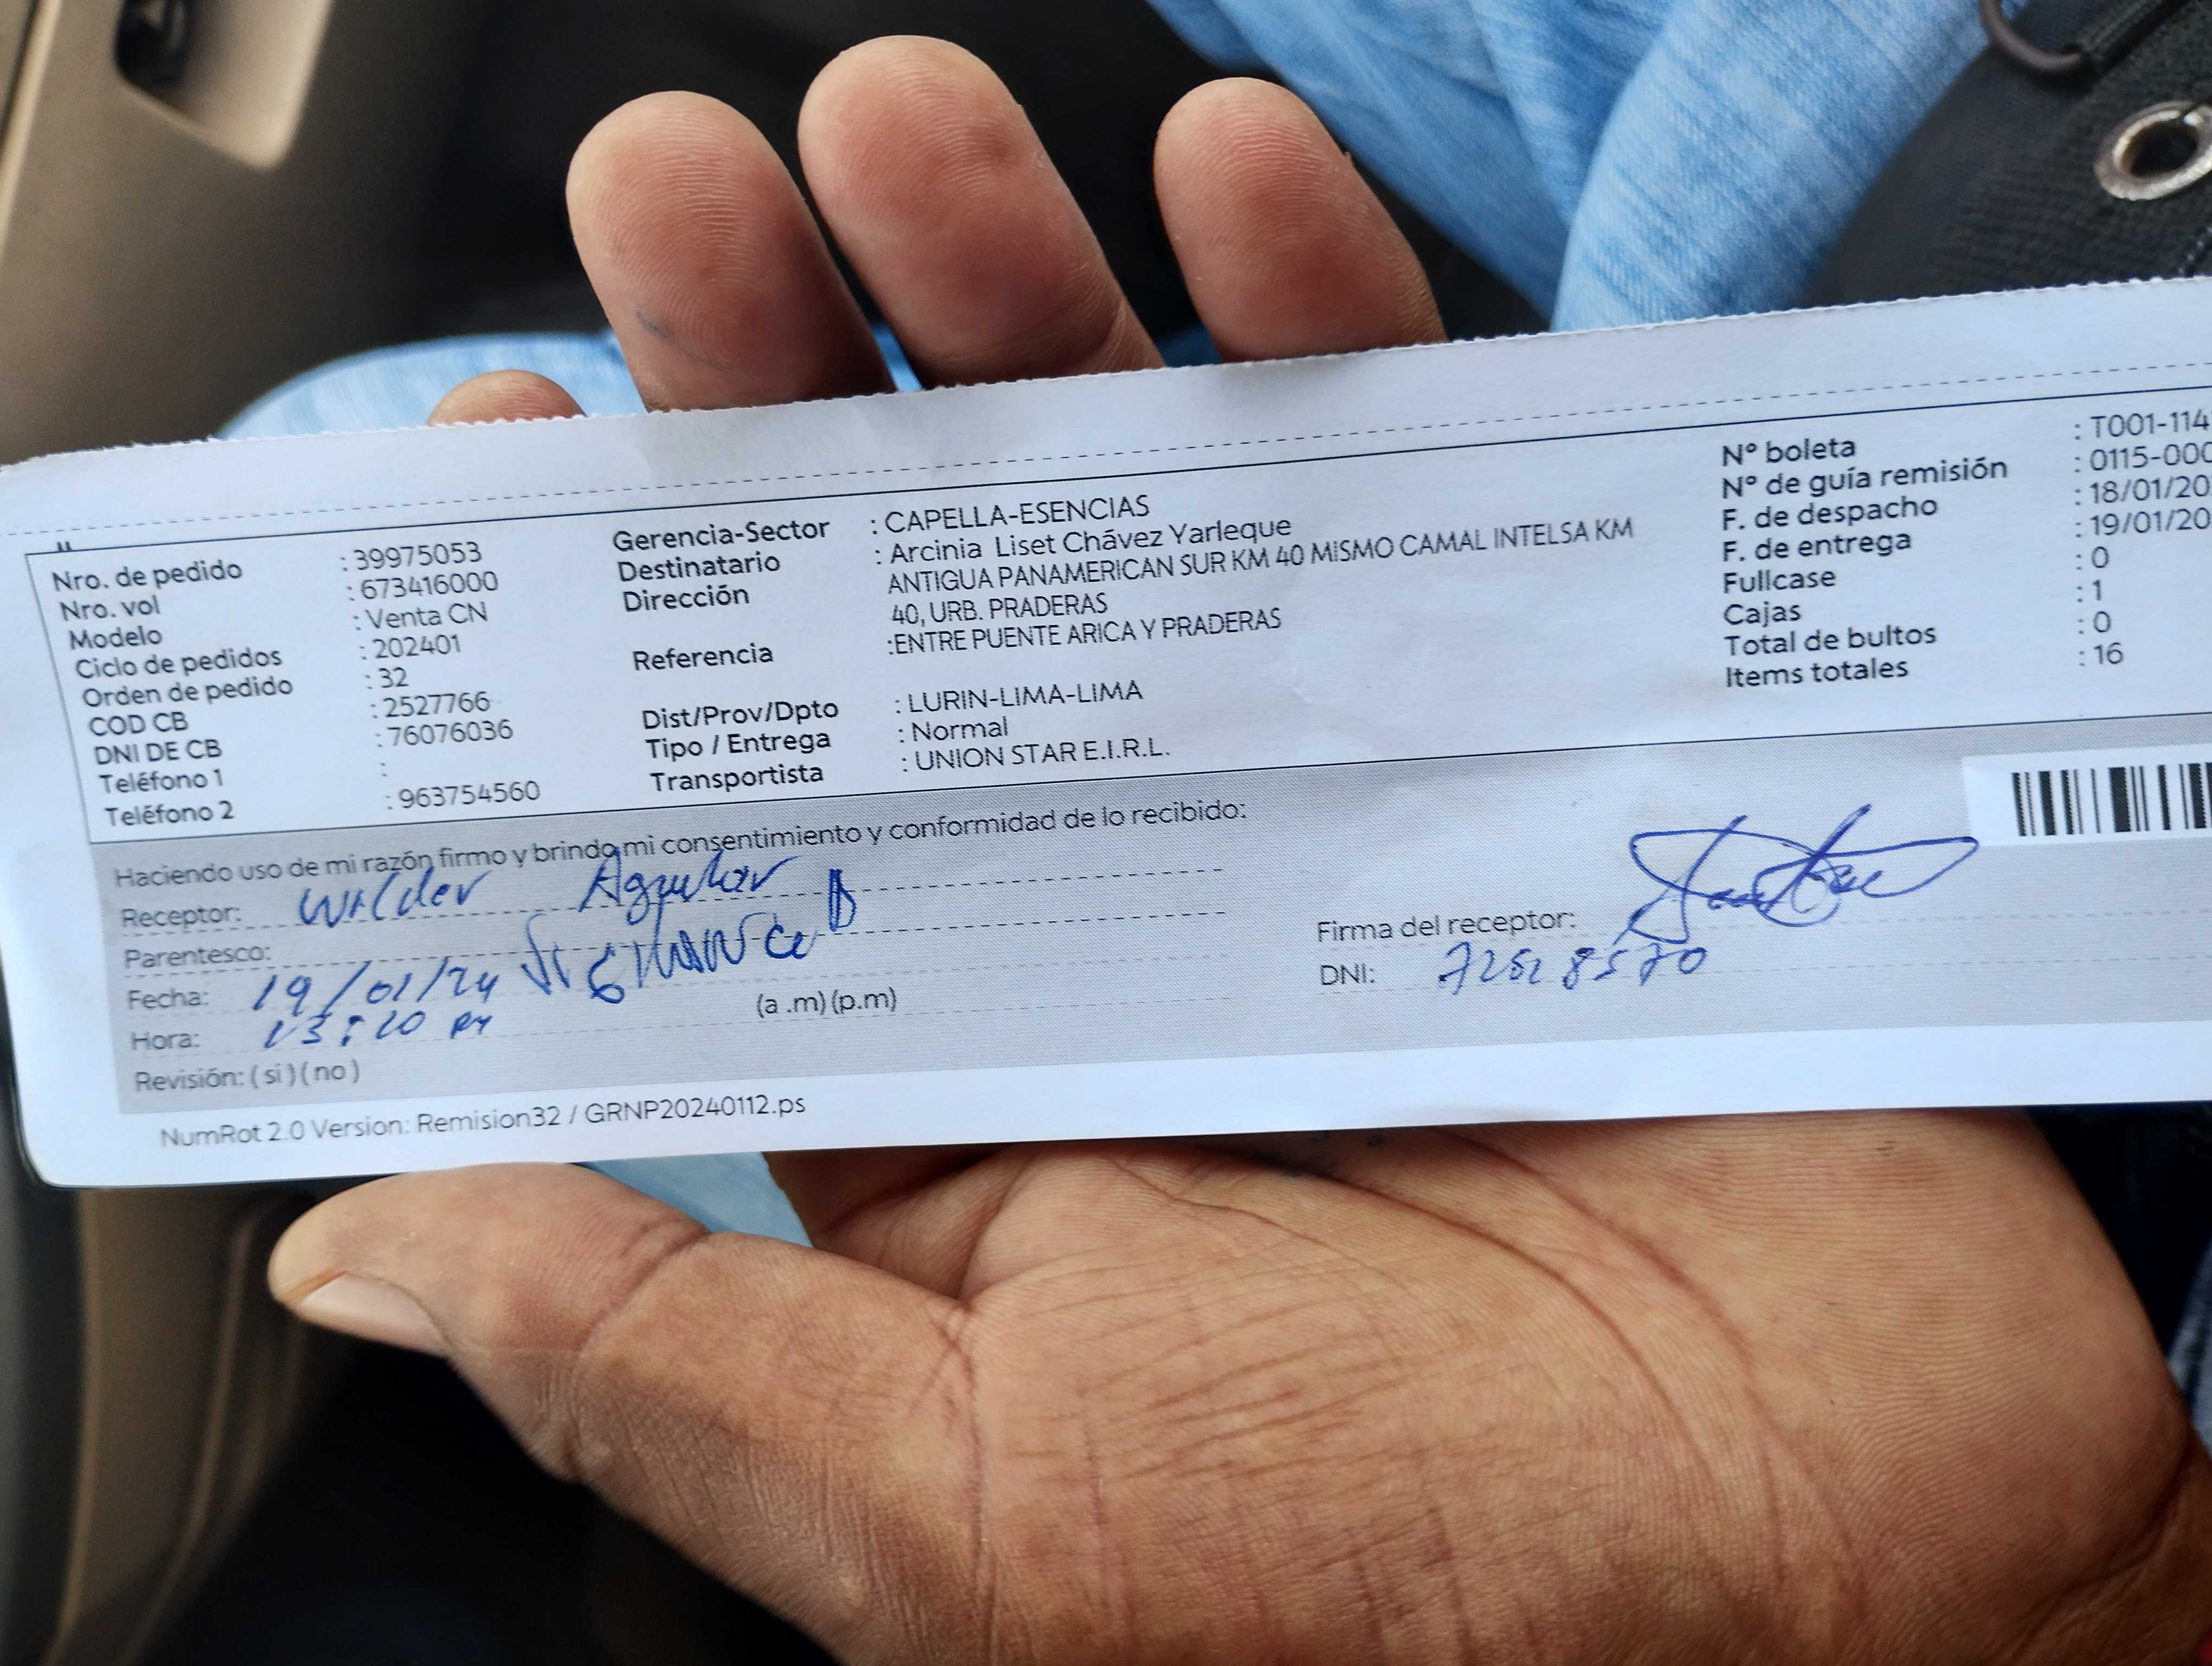 Nro. de pedido : 39975053
Nro. vol : 673416000
Modelo : Venta CN
Ciclo de pedidos : 202401
Orden de pedido : 32
COD CB : 2527766
DNI DE CB : 76076036
Teléfono 1 :
Teléfono 2 : 963754560
Gerencia-Sector : CAPELLA-ESENCIAS
Destinatario : Arcinia Liset Chávez Yarleque
Dirección ANTIGUA PANAMERICAN SUR KM 40 MISMO CAMAL INTELSA KM
40, URB. PRADERAS
Referencia :ENTRE PUENTE ARICA Y PRADERAS
Dist/Prov/Dpto : LURIN-LIMA-LIMA
Tipo / Entrega : Normal
Transportista : UNION STAR E.I.R.L.
Nº boleta : T001-114
Nº de guía remisión : 0115-000
F. de despacho : 18/01/20
F. de entrega : 19/01/20
Fullcase : 0
Cajas : 1
Total de bultos : 0
Items totales : 16
Haciendo uso de mi razón firmo y brindo mi consentimiento y conformidad de lo recibido:
Receptor: Wilder Aguilar
Parentesco:
Fecha: 19/01/24
Hora: 13:20 (a .m) (p.m)
Revisión: ( si ) ( no )
Firma del receptor:
DNI:
NumRot 2.0 Version: Remision32 / GRNP20240112.ps